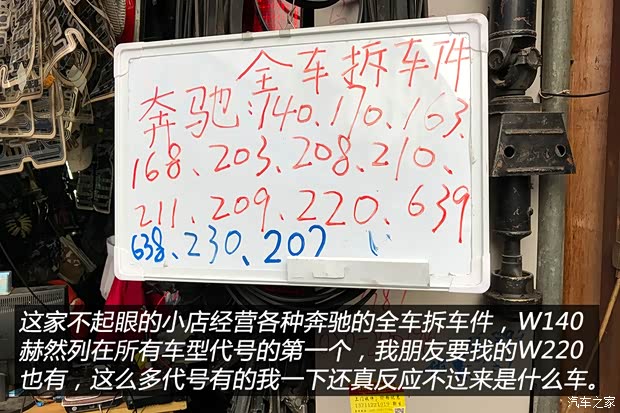 全车拆车件
奔驰:140、170、163、
168、203、208、210、
211、209、220、639
638、230、207
这家不起眼的小店经营各种奔驰的全车拆车件，W140
赫然列在所有车型代号的第一个，我朋友要找的W220
也有，这么多代号有的我一下还真反应不过来是什么车。
汽车之家